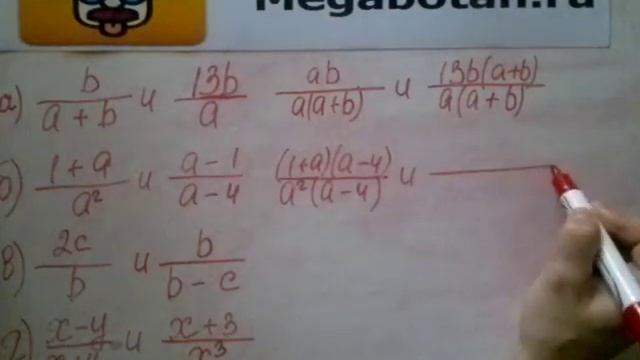 Megabotan.ru
а) b/(a + b) и 13b/a ab/(a(a+b)) и 13b(a+b)/(a(a+b))
б) (1+a)/a² и (a-1)/(a-4) (1+a)(a-4)/(a²(a-4)) и
в) 2c/b и b/(b-c)
г) x-y и (x+3)/x³